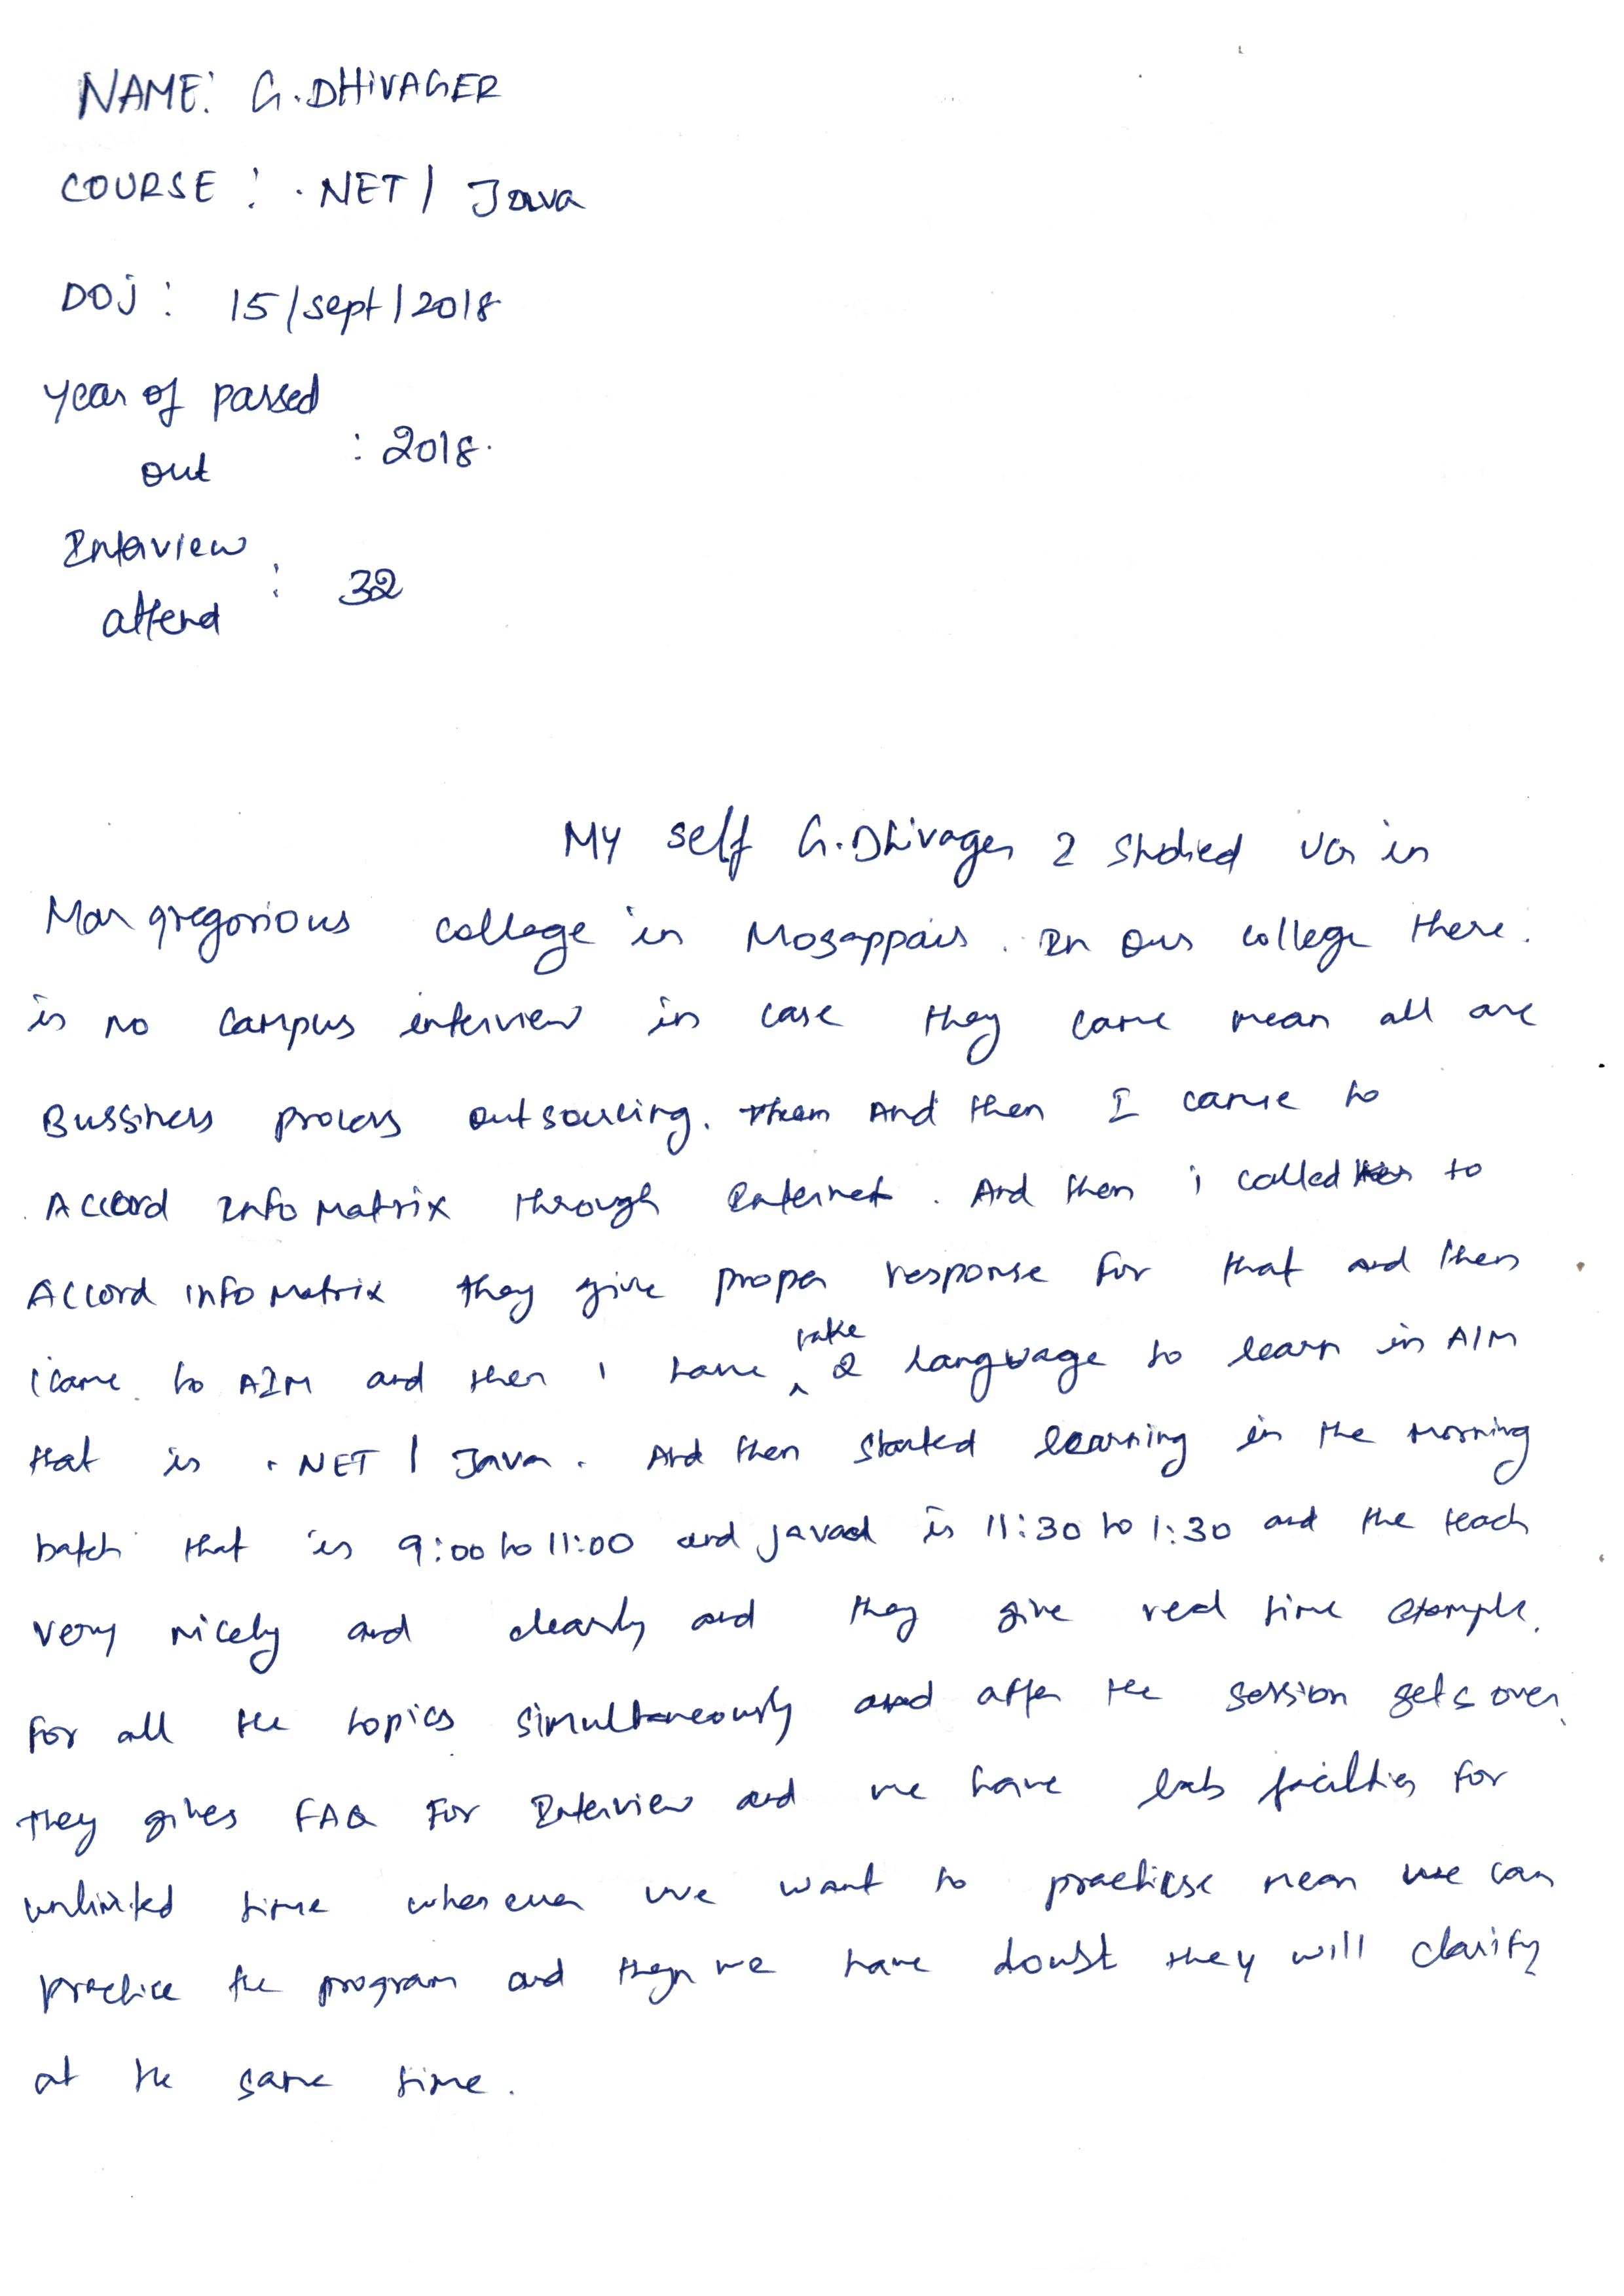 NAME: G.DHIVAGER
COURSE : .NET / Java
DOJ : 15/sept/2018
year of passed
out : 2018.
Interview
attend : 32
My self G.Dhivager I studied UG in
Mar gregorious college in Mogappair. In our college there.
is no campus interview in case they came mean all are
Bussiness process outsourcing. And then I came to
Accord Info Matrix through Internet. And then i called to
Accord info Matrix they give proper response for that and then
i came to AIM and then i have take 2 language to learn in AIM
that is .NET / Java. And then started learning in the morning
batch that is 9:00 to 11:00 and java is 11:30 to 1:30 and the teach
very nicely and clearly and they give real time example.
For all the topics simultaneously and after the session gets over.
They gives FAQ For Interview and we have lab facilities for
unlimited time whenever we want to practise mean we can
practice the program and then we have doubt they will clarify
at the same time.